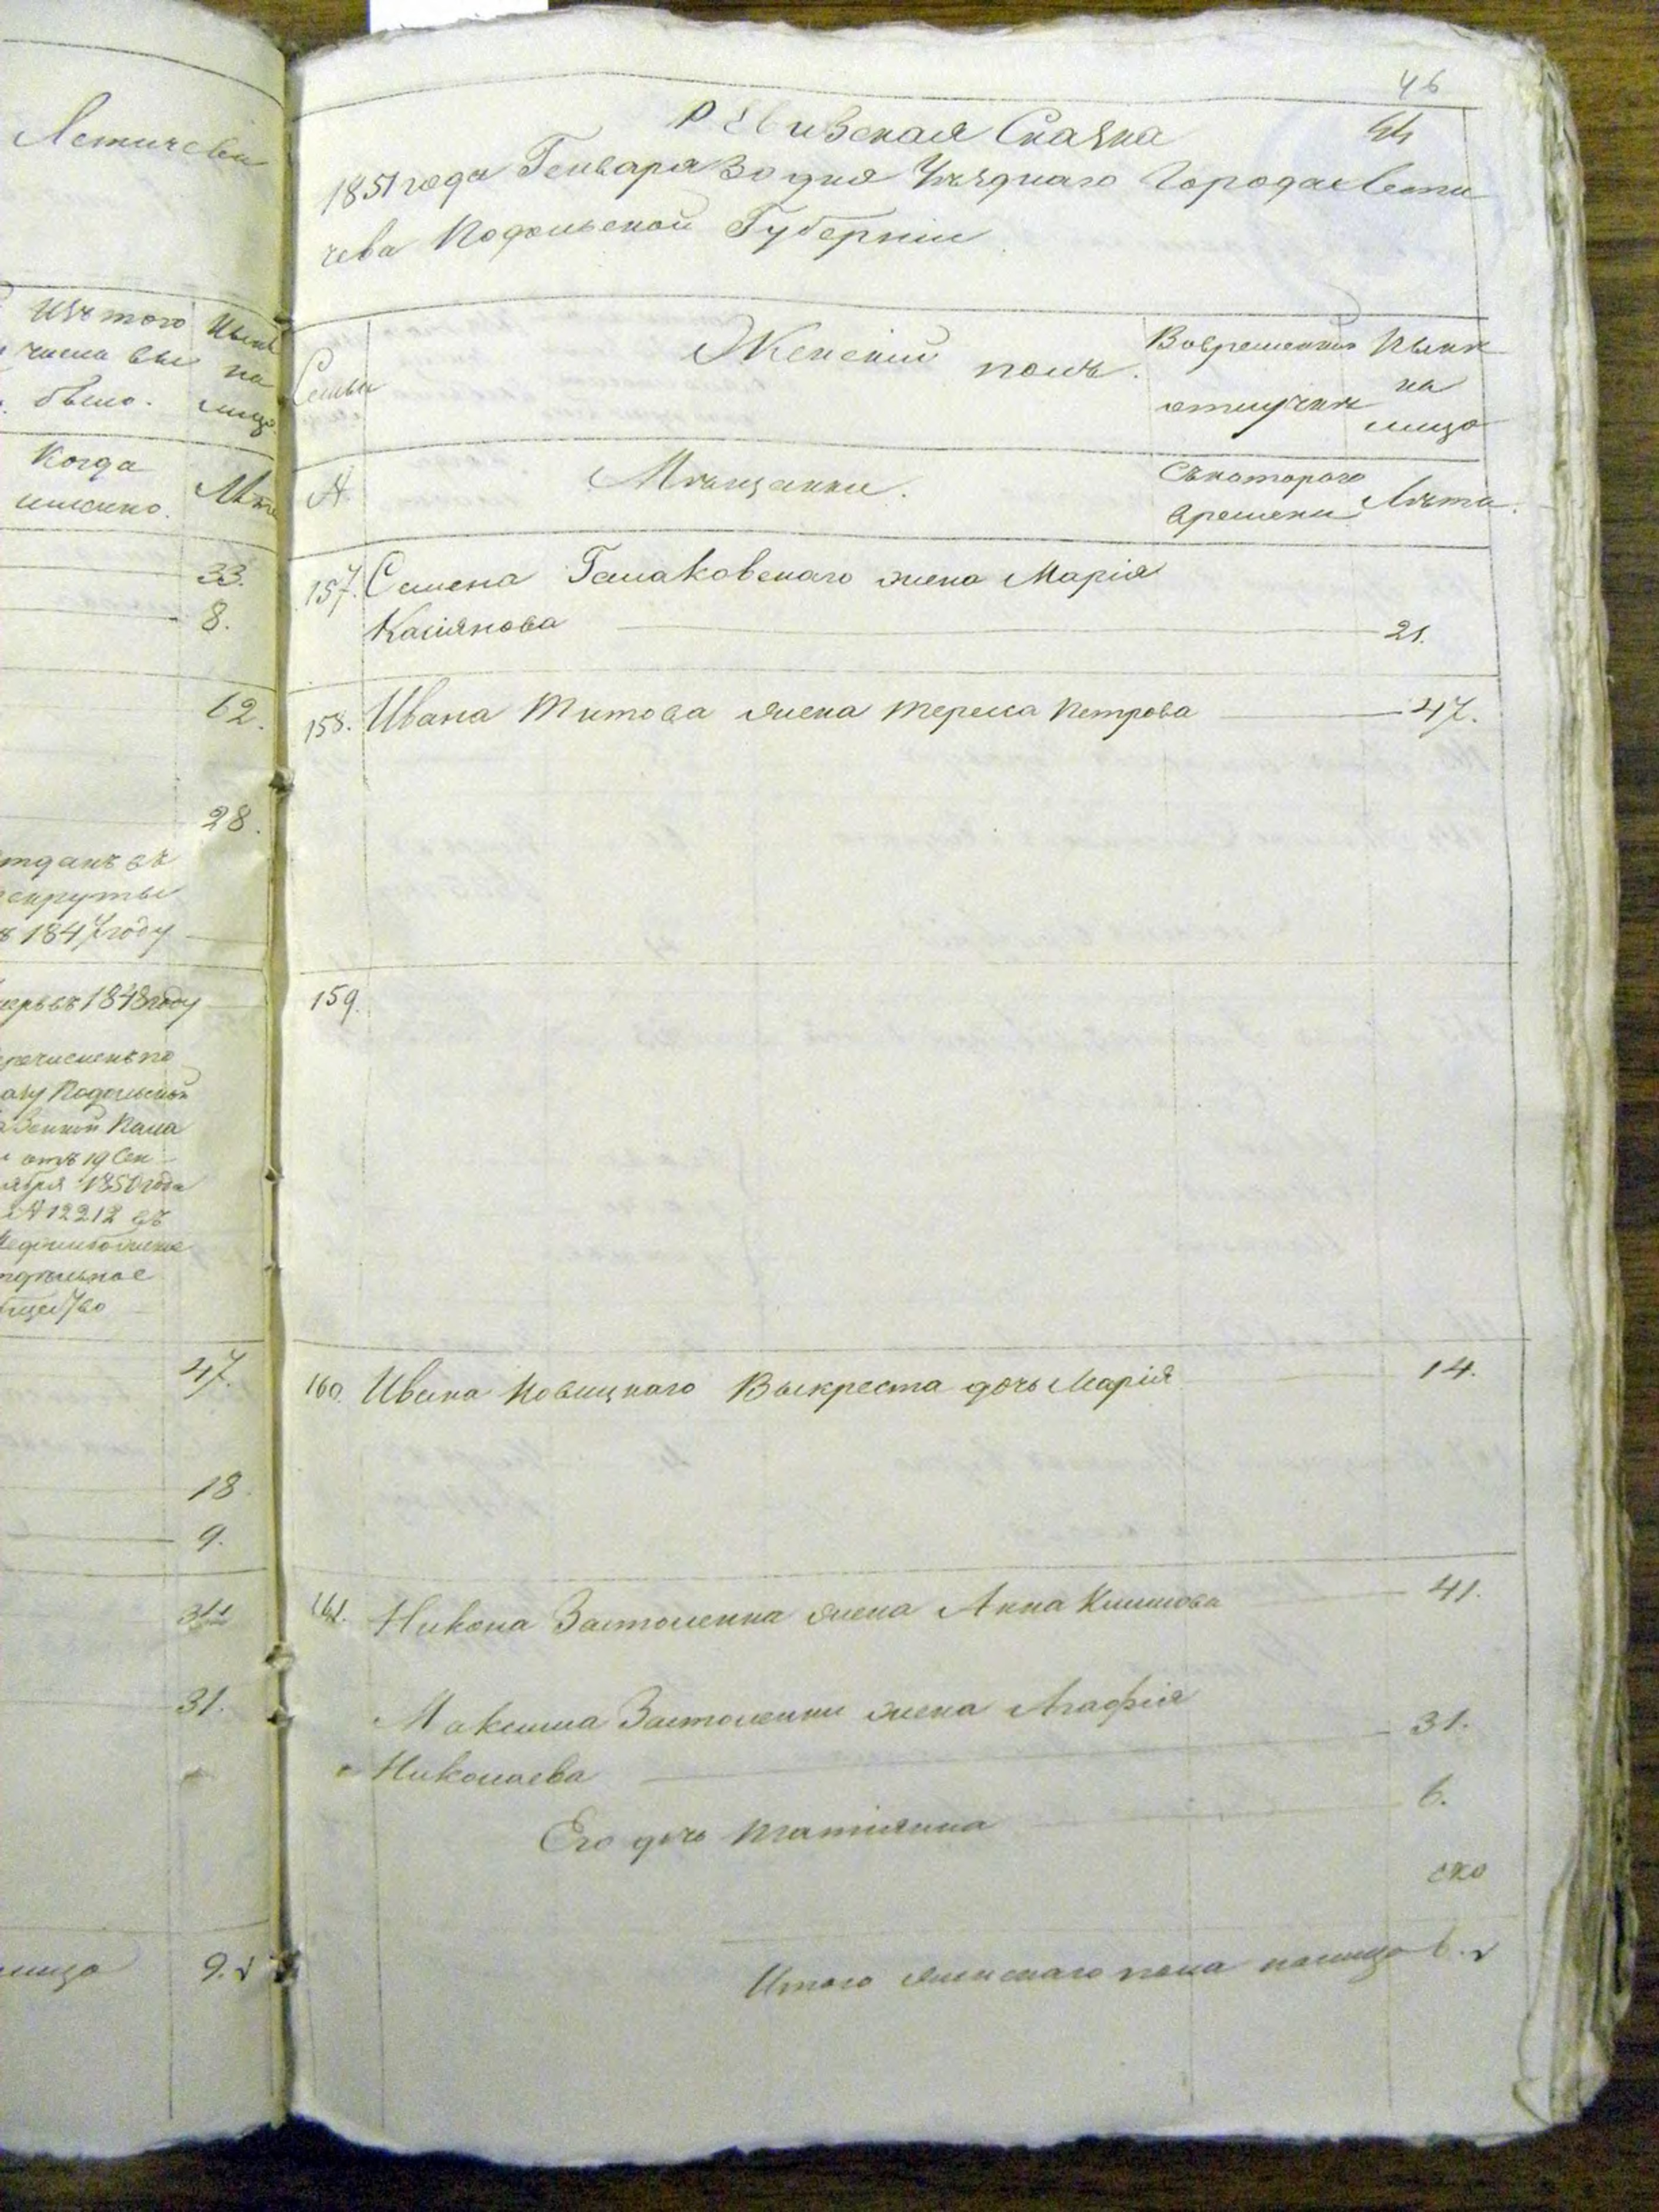 Летичева
Изъ того
числа вы
было.
Нынѣ
на
лицо.
Когда
именно.
Лѣта
33.
8.
62.
28.
отданъ въ
рекруты
въ 1847 году
умерь въ 1848 году
перечисленъ по
указу Подольской
Казенной Пала
отъ 19 Сен
тября 1850 года
№ 12212 въ
47.
18
9.
31.
лицо 9.
46
Ревизская Сказка
1851 года Генваря 30 дня Уѣзднаго Города Лети
чева Подольской Губерніи
Семьи
Женскій полъ.
Вовременной
отлучкѣ
Нынѣ
на
лицо
№
Мѣщанки.
Съкотораго
времени
Лѣта.
157. Семена Гамаковскаго жена Марія
Касіянова 21.
158. Ивана Титова жена Тересса Петрова 47.
159.
160. Ивана Новицкаго Выкреста дочь Марія 14.
161. Никона Застоленка жена Анна Климова 41.
Максима Застоленки жена Агафія
Николаева 31.
Его дочь Татіянна 6.
Итого женскаго пола налицо 6.